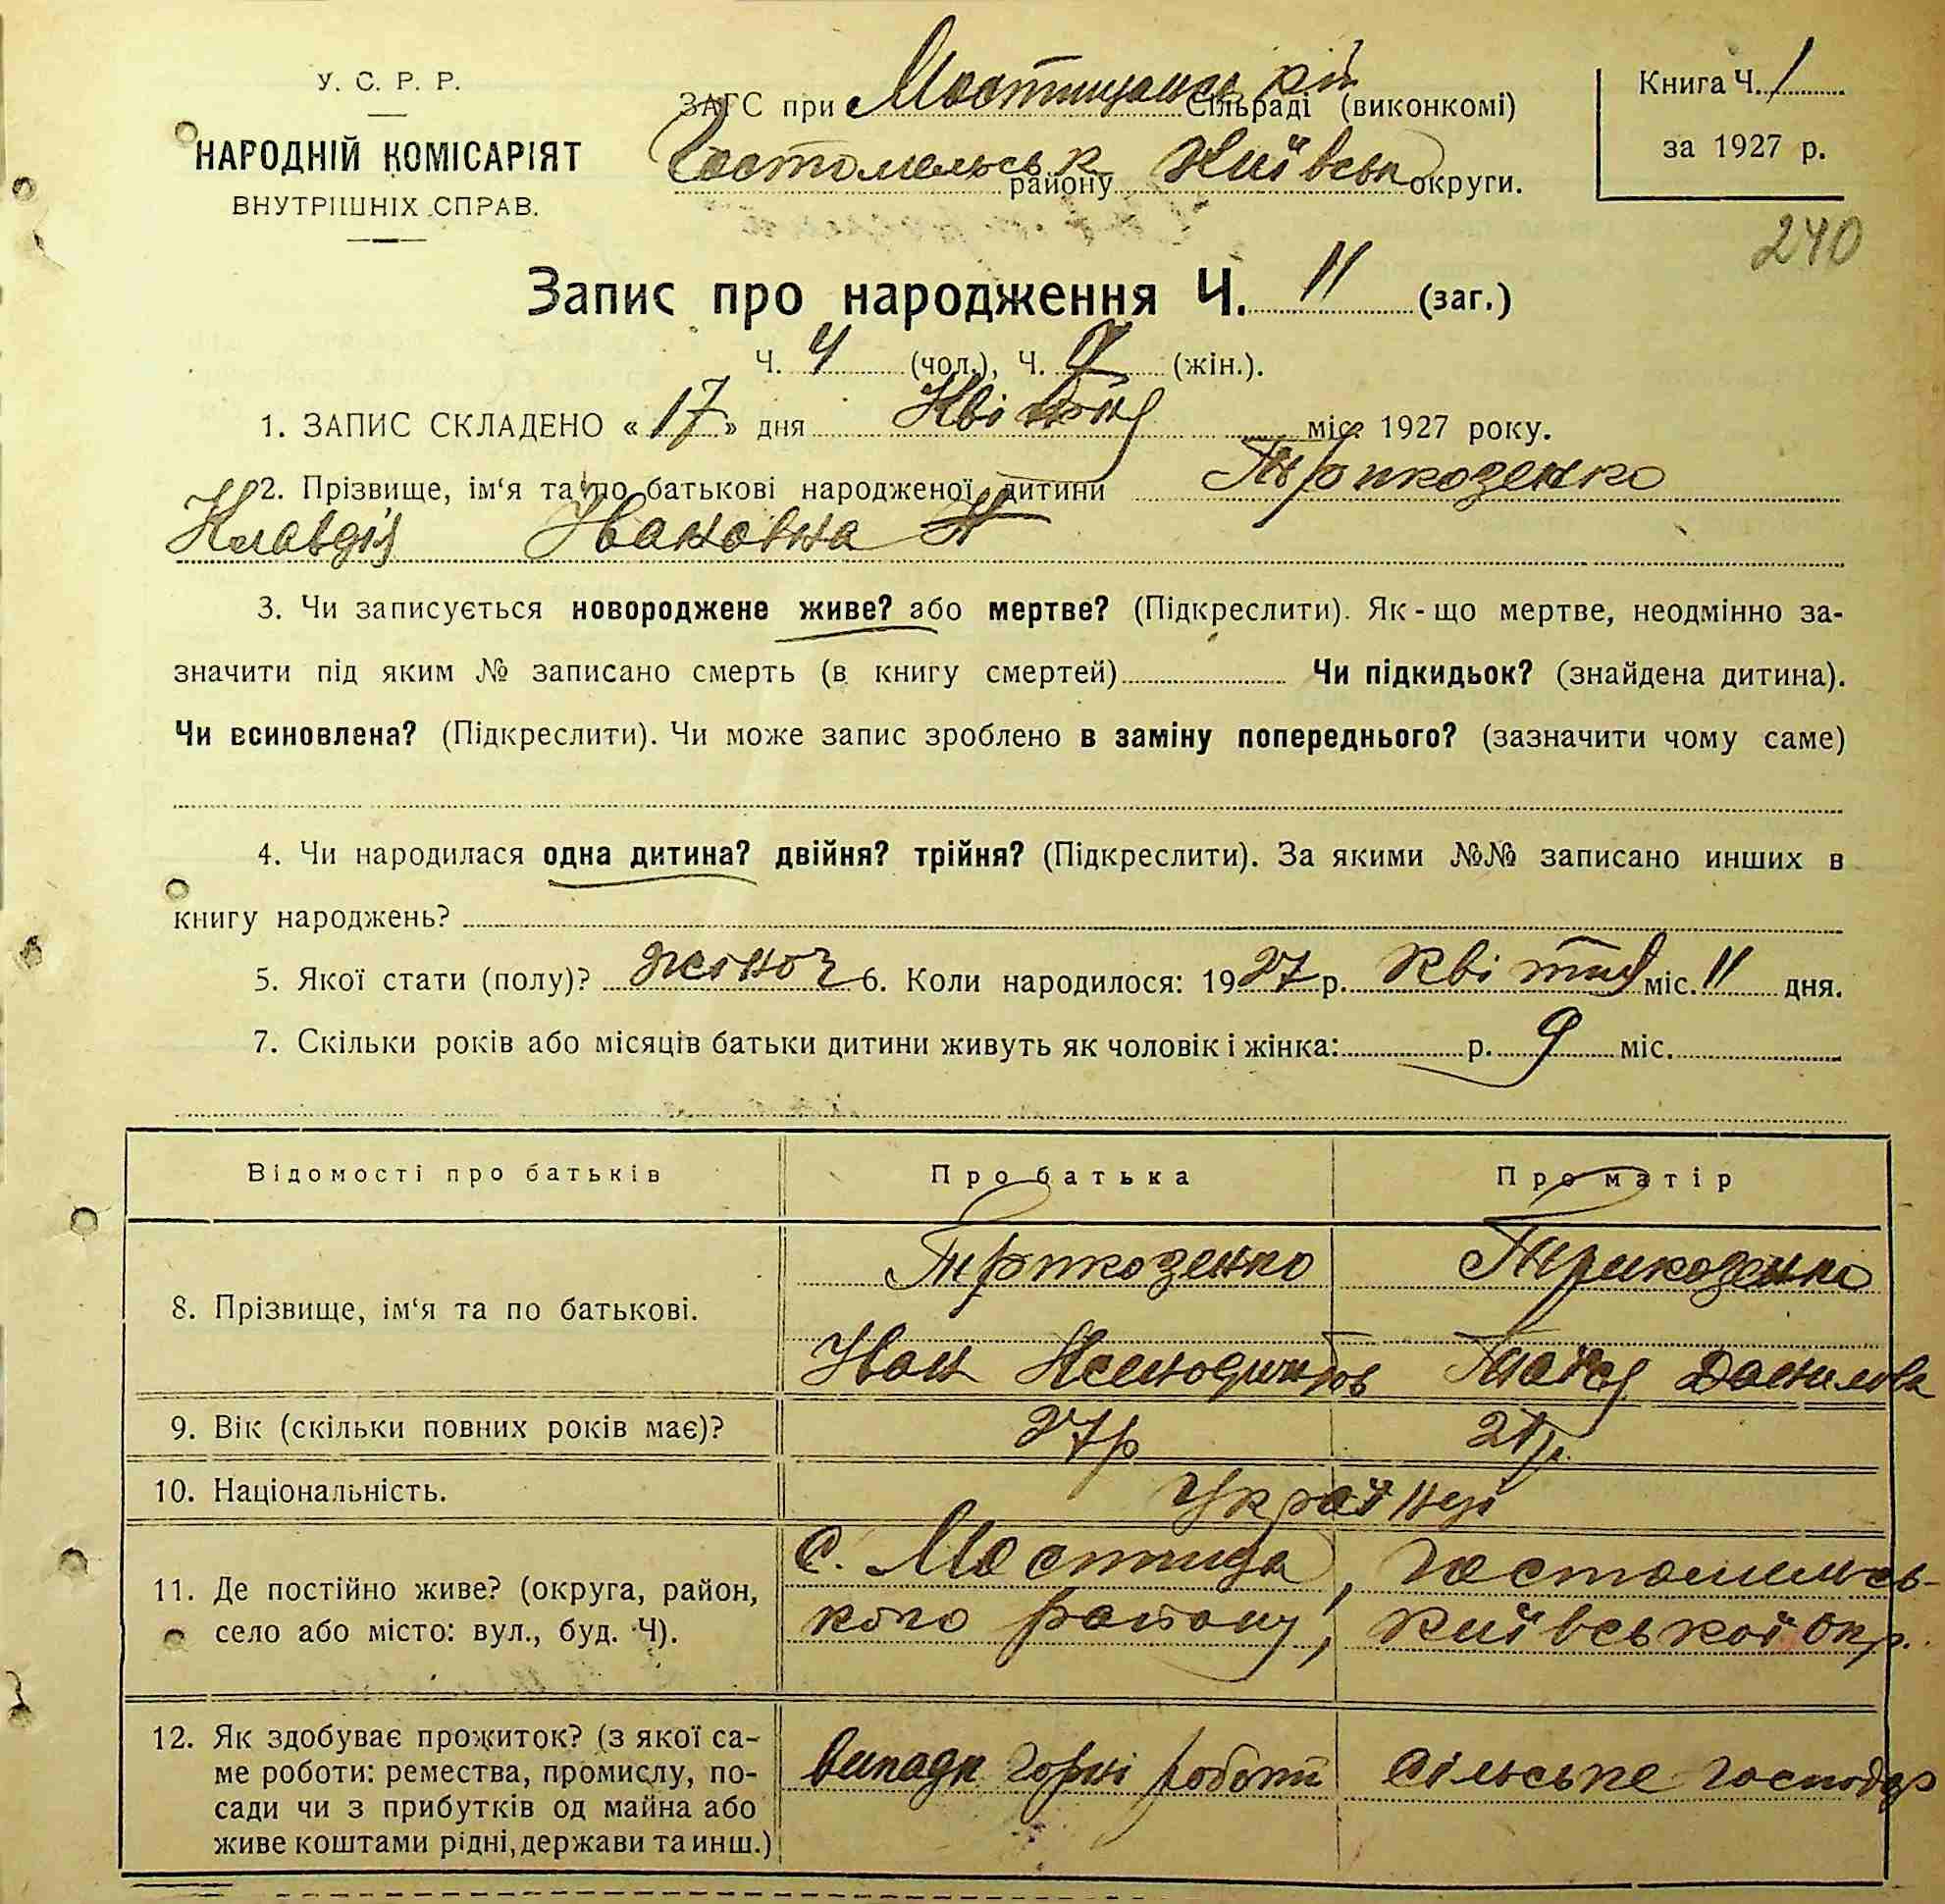 У. С. Р. Р.
НАРОДНІЙ КОМІСАРІЯТ
ВНУТРІШНІХ СПРАВ.
ЗАГС при Мостищанській Сільраді (виконкомі)
Гостомельськ району Київськ округи.
Книга Ч. 1
за 1927 р.
240
Запис про народження Ч. 11 (заг.)
Ч. 4 (чол.), Ч. 7 (жін.).
1. ЗАПИС СКЛАДЕНО «17» дня Квітня міс. 1927 року.
2. Прізвище, ім‘я та по батькові народженої дитини Трикозенко
Клавдія Івановна
3. Чи записується новороджене живе? або мертве? (Підкреслити). Як-що мертве, неодмінно за-
значити під яким № записано смерть (в книгу смертей) Чи підкидьок? (знайдена дитина).
Чи всиновлена? (Підкреслити). Чи може запис зроблено в заміну попереднього? (зазначити чому саме)
4. Чи народилася одна дитина? двійня? трійня? (Підкреслити). За якими №№ записано инших в
книгу народжень?
5. Якої стати (полу)? жіноч 6. Коли народилося: 1927 р. Квітня міс. 11 дня.
7. Скільки років або місяців батьки дитини живуть як чоловік і жінка: р. 9 міс.
Відомості про батьків Про батька Про матір
8. Прізвище, ім‘я та по батькові. Трикозенко Трикозенко
Іван Таїся Данилова
9. Вік (скільки повних років має)? 27р 21р.
10. Національність. Українці
11. Де постійно живе? (округа, район, с. Мостища, Гостомельсь-
село або місто: вул., буд. Ч). кого району, Київської окр.
12. Як здобуває прожиток? (з якої са-
ме роботи: ремества, промислу, по- випадк горні роботи сільське господар
сади чи з прибутків од майна або
живе коштами рідні, держави та инш.)